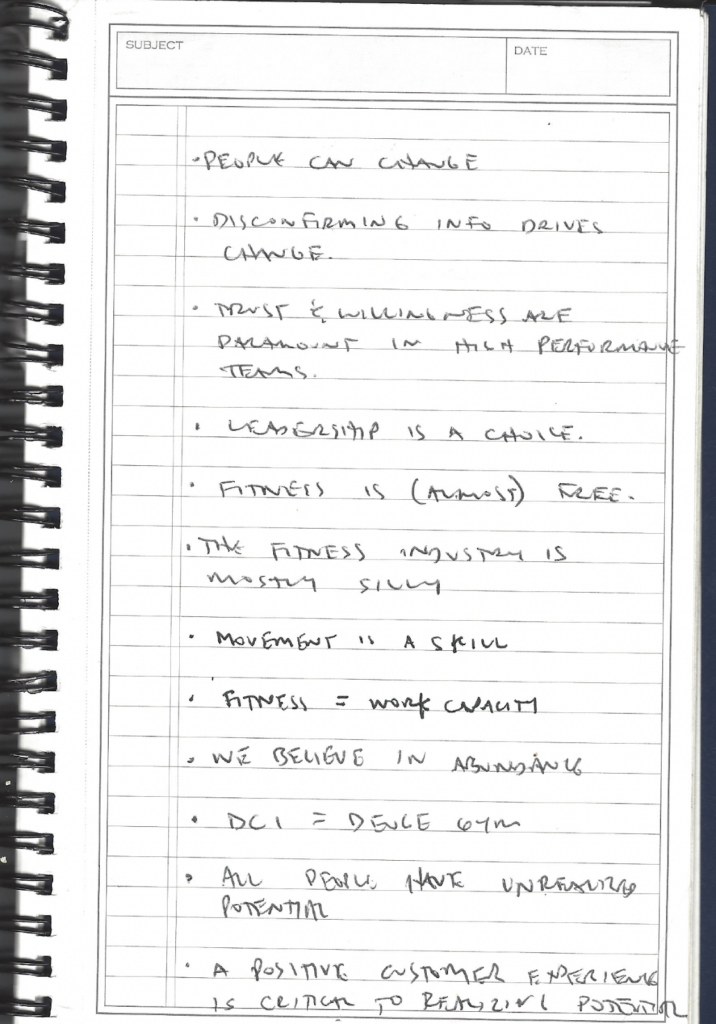 SUBJECT
DATE
• PEOPLE CAN CHANGE
• DISCONFIRMING INFO DRIVES
CHANGE.
• TRUST & WILLINGNESS ARE
PARAMOUNT IN HIGH PERFORMANCE
TEAMS.
• LEADERSHIP IS A CHOICE.
• FITNESS IS (ALMOST) FREE.
• THE FITNESS INDUSTRY IS
MOSTLY SILLY
• MOVEMENT IS A SKILL
• FITNESS = WORK CAPACITY
• WE BELIEVE IN ABUNDANCE
• DCI = GYM
• ALL PEOPLE HAVE UNREALIZED
POTENTIAL
• A POSITIVE CUSTOMER EXPERIENCE
IS CRITICAL TO REALIZING POTENTIAL